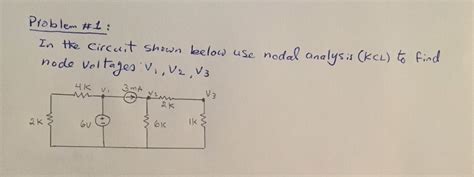 Problem #1:
In the circuit shown below use nodal analysis (KCL) to find
node voltages V1, V2, V3
4K V1 3mA V2 2K V3
2K 6V 6K 1K